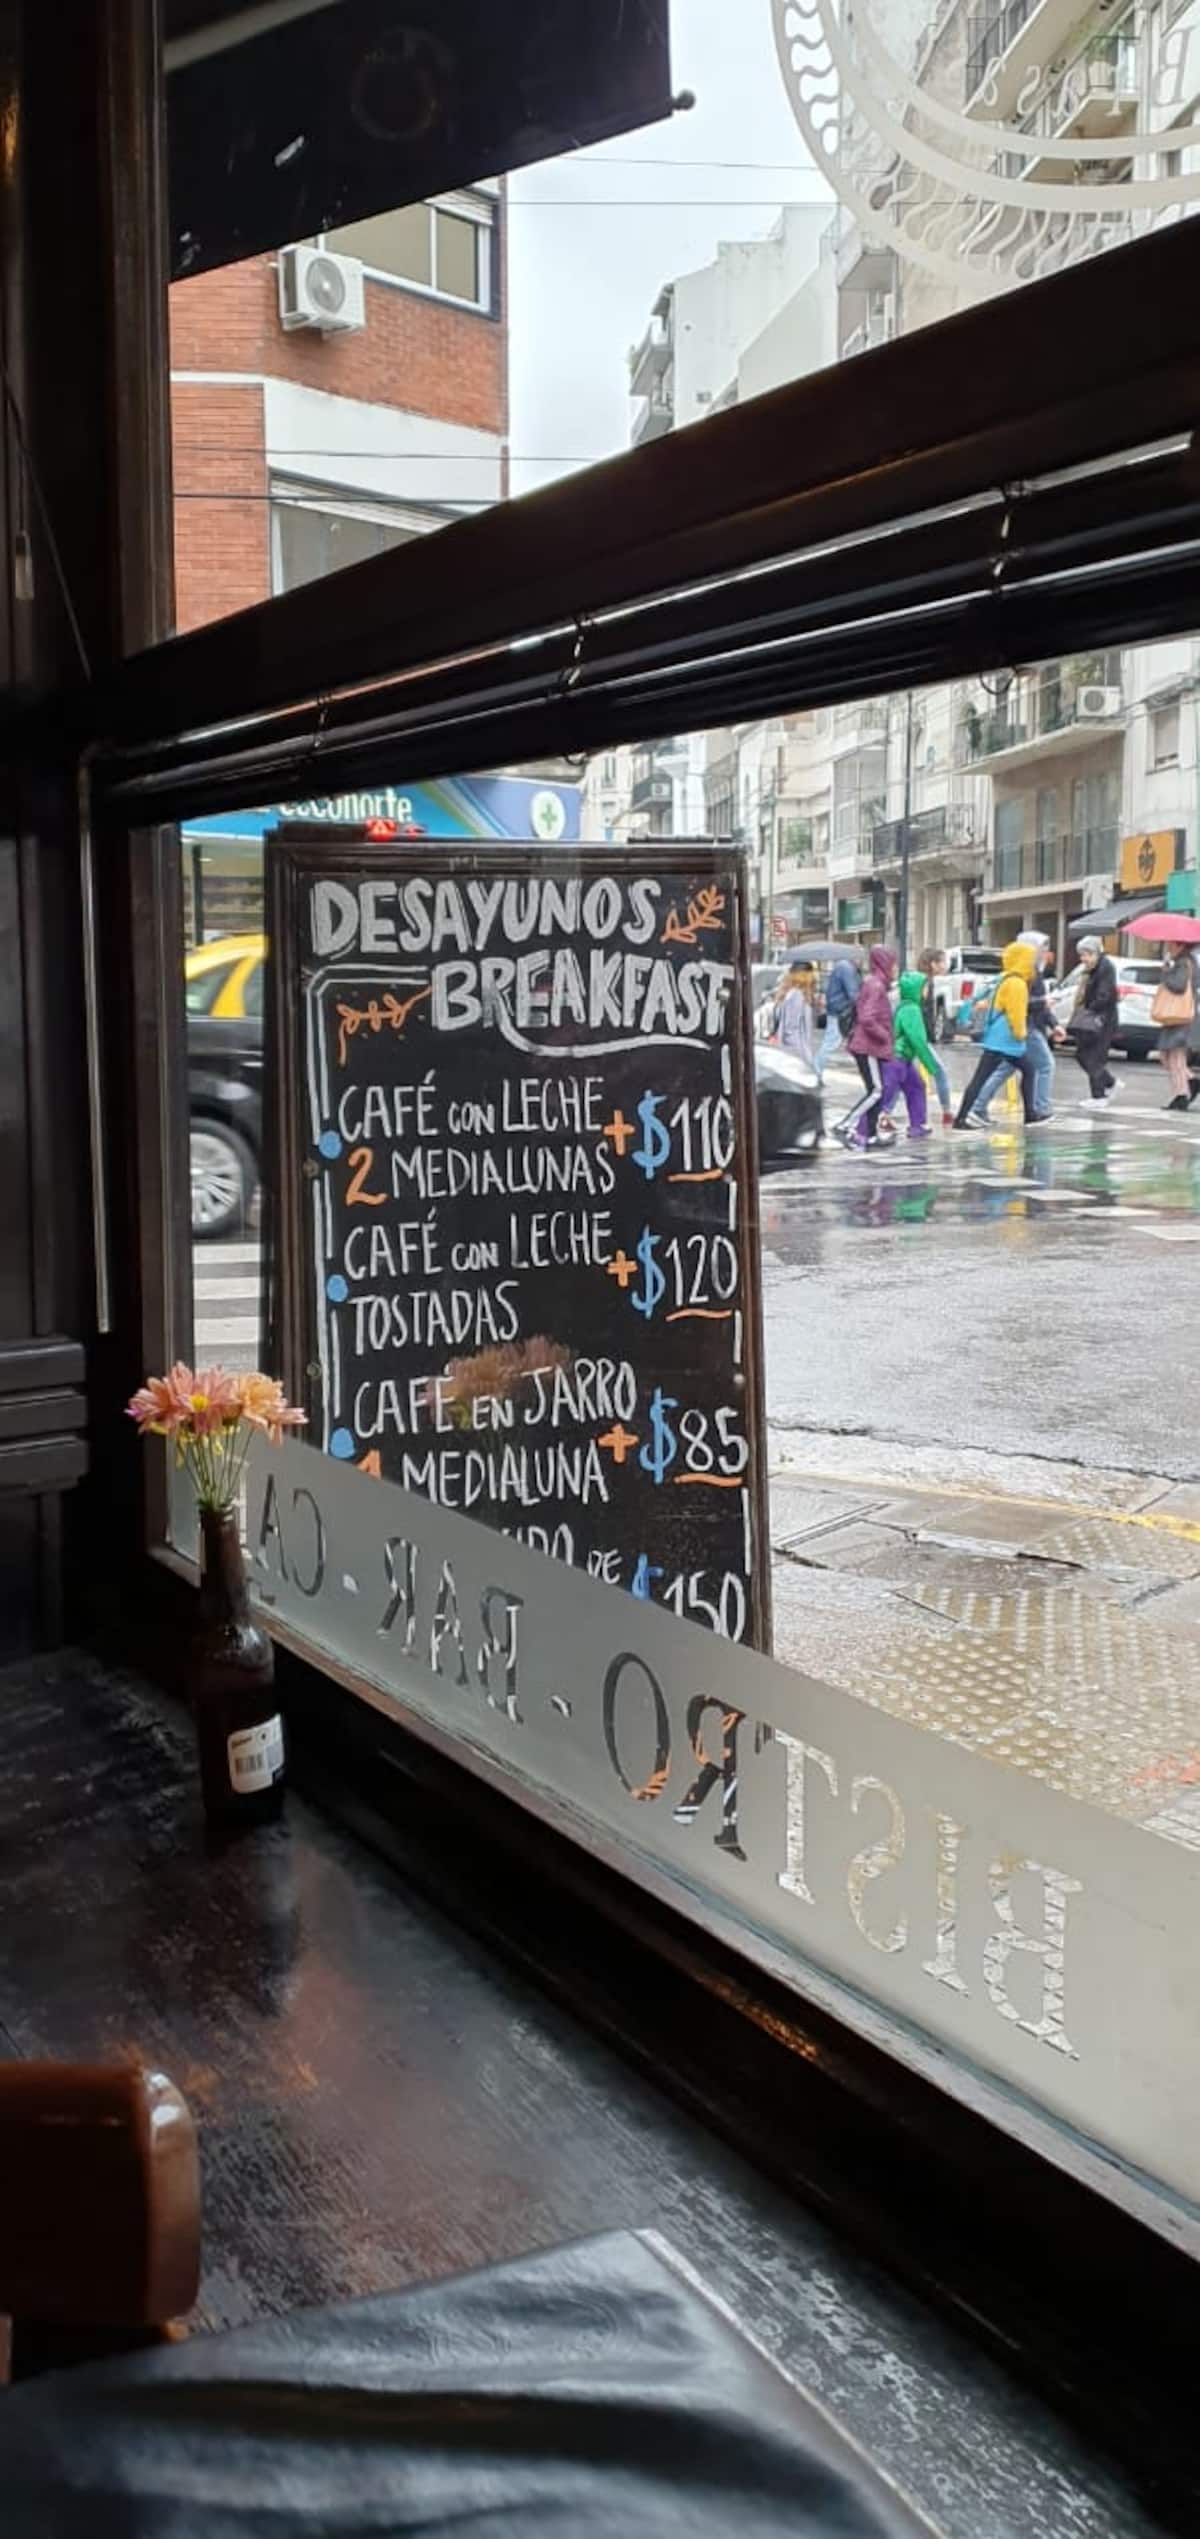 DESAYUNOS
BREAKFAST
CAFÉ CON LECHE +
2 MEDIALUNAS
$110
CAFÉ CON LECHE +
TOSTADAS
$120
CAFÉ EN JARRO +
1 MEDIALUNA
$85
DE
$150
BISTRO - BAR - CA